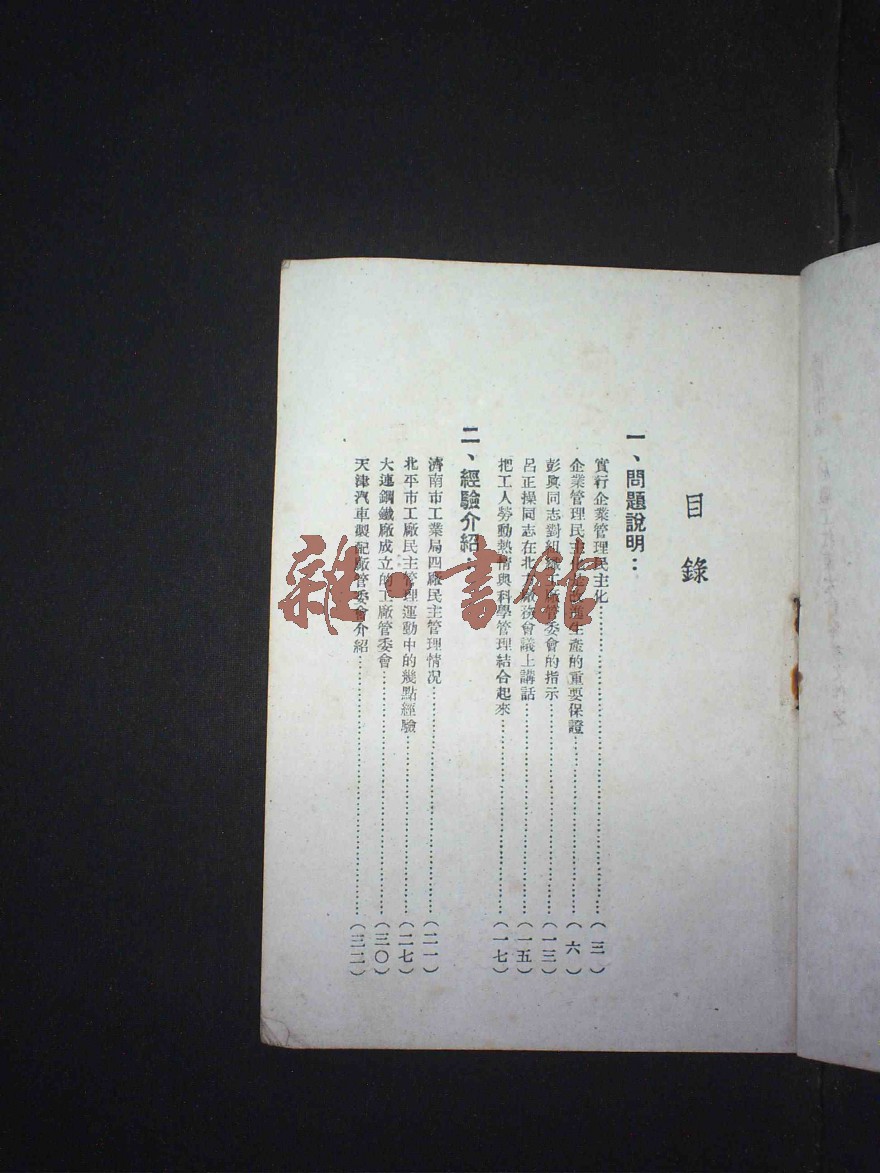 目錄
一、問題說明：
實行企業管理民主化……（三）
企業管理民主化是改進生產的重要保證……（六）
彭真同志對組織工廠管委會的指示……（一三）
呂正操同志在北平廠務會議上講話……（一五）
把工人勞動熱情與科學管理結合起來……（一七）
二、經驗介紹：
濟南市工業局四廠民主管理情況……（二一）
北平市工廠民主管理運動中的幾點經驗……（二七）
大連鋼鐵廠成立的工廠管委會……（三〇）
天津汽車製配廠管委會介紹……（三二）
雜·書館